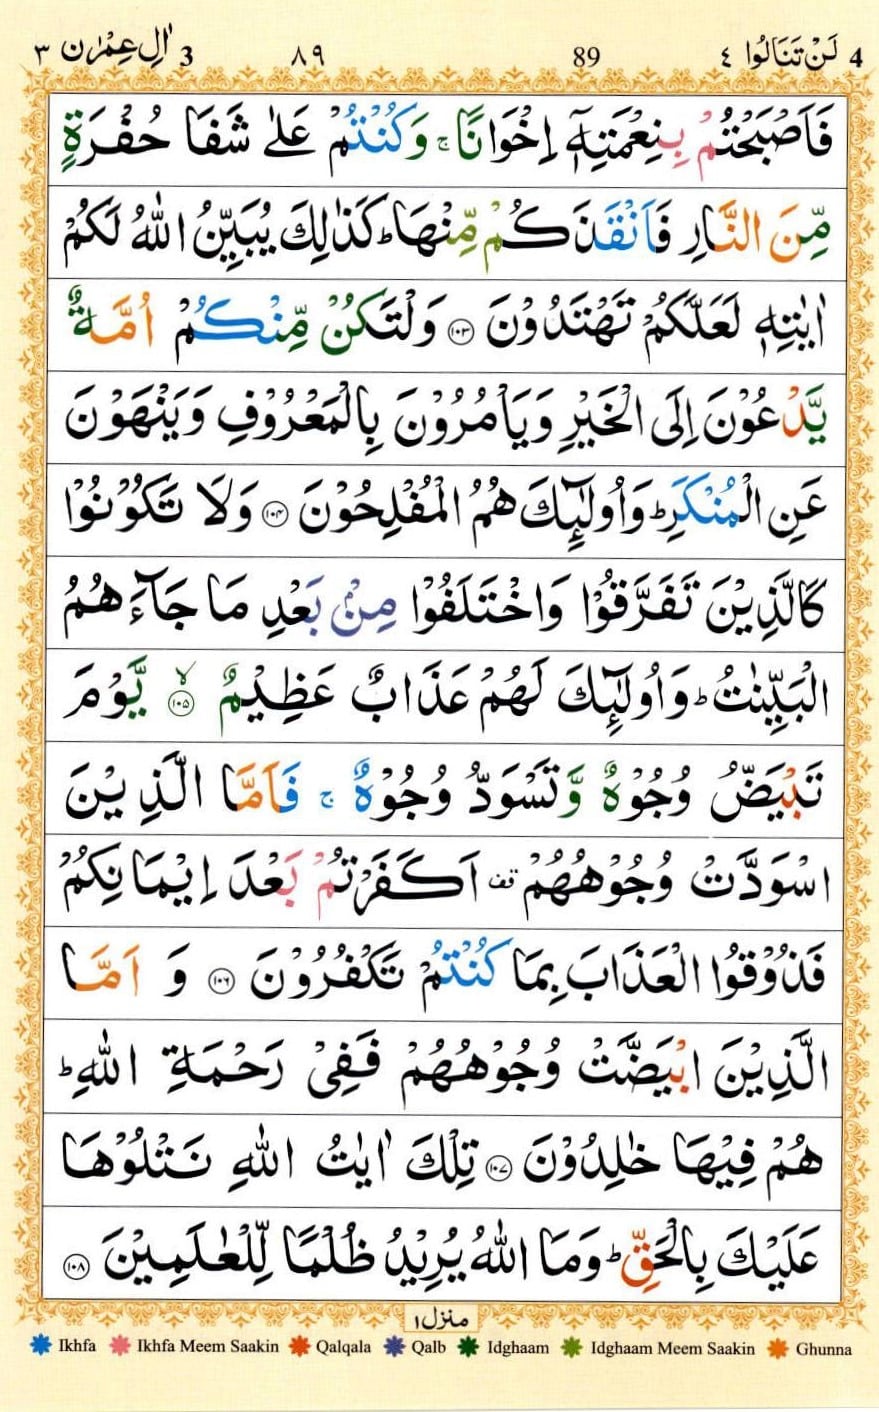 4 لَنْ تَنَالُوا ٤ 89 ٨٩ 3 اٰلِ عِمْرٰن ٣
فَاَصْبَحْتُمْ بِنِعْمَتِهٖۤ اِخْوَانًا ۚ وَكُنْتُمْ عَلٰى شَفَا حُفْرَةٍ
مِّنَ النَّارِ فَاَنْقَذَكُمْ مِّنْهَا ؕ كَذٰلِكَ يُبَيِّنُ اللّٰهُ لَكُمْ
اٰيٰتِهٖ لَعَلَّكُمْ تَهْتَدُوْنَ ﴿۱۰۳﴾ وَلْتَكُنْ مِّنْكُمْ اُمَّةٌ
يَّدْعُوْنَ اِلَى الْخَيْرِ وَيَاْمُرُوْنَ بِالْمَعْرُوْفِ وَيَنْهَوْنَ
عَنِ الْمُنْكَرِ ؕ وَاُولٰٓئِكَ هُمُ الْمُفْلِحُوْنَ ﴿۱۰۴﴾ وَلَا تَكُوْنُوْا
كَالَّذِيْنَ تَفَرَّقُوْا وَاخْتَلَفُوْا مِنْۢ بَعْدِ مَا جَآءَهُمُ
الْبَيِّنٰتُ ؕ وَاُولٰٓئِكَ لَهُمْ عَذَابٌ عَظِيْمٌ ﴿۱۰۵﴾ۙ يَّوْمَ
تَبْيَضُّ وُجُوْهٌ وَّتَسْوَدُّ وُجُوْهٌ ۚ فَاَمَّا الَّذِيْنَ
اسْوَدَّتْ وُجُوْهُهُمْ قف اَكَفَرْتُمْ بَعْدَ اِيْمَانِكُمْ
فَذُوْقُوا الْعَذَابَ بِمَا كُنْتُمْ تَكْفُرُوْنَ ﴿۱۰۶﴾ وَاَمَّا
الَّذِيْنَ ابْيَضَّتْ وُجُوْهُهُمْ فَفِيْ رَحْمَةِ اللّٰهِ ؕ
هُمْ فِيْهَا خٰلِدُوْنَ ﴿۱۰۷﴾ تِلْكَ اٰيٰتُ اللّٰهِ نَتْلُوْهَا
عَلَيْكَ بِالْحَقِّ ؕ وَمَا اللّٰهُ يُرِيْدُ ظُلْمًا لِّلْعٰلَمِيْنَ ﴿۱۰۸﴾
منزل ۱
Ikhfa Ikhfa Meem Saakin Qalqala Qalb Idghaam Idghaam Meem Saakin Ghunna